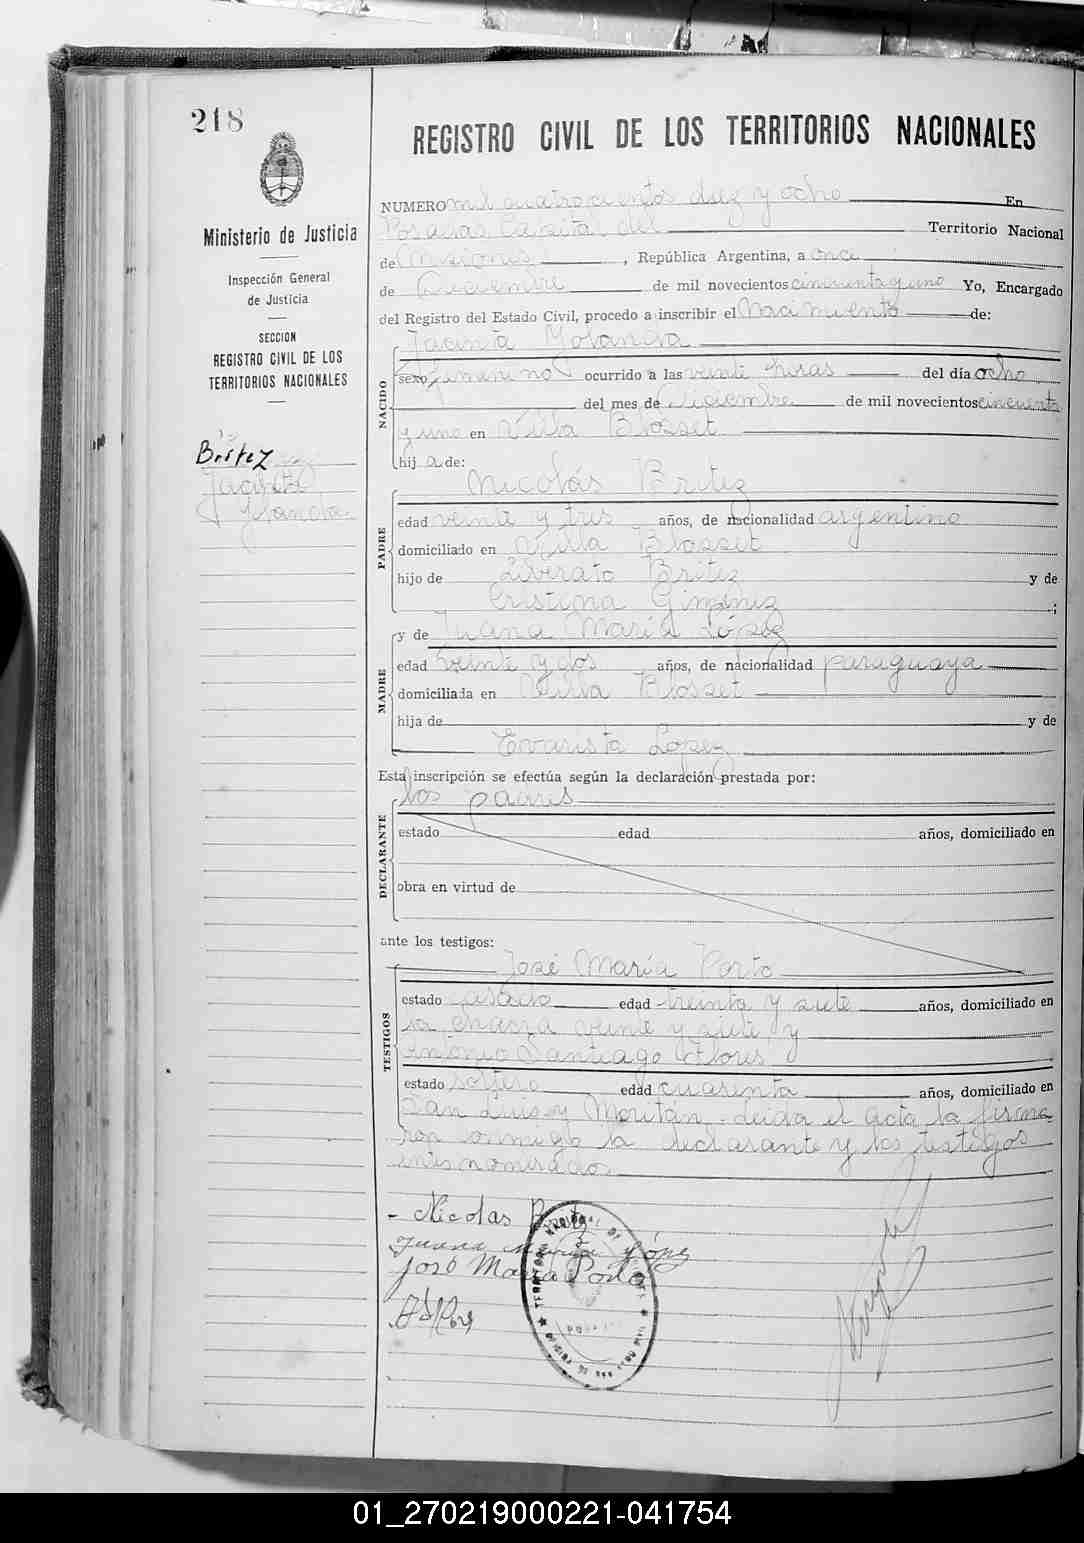 218
REGISTRO CIVIL DE LOS TERRITORIOS NACIONALES
Ministerio de Justicia
Inspección General
de Justicia
SECCION
REGISTRO CIVIL DE LOS
TERRITORIOS NACIONALES
Britez
Jacinta
Yolanda
NUMERO mil cuatrocientos diez y ocho En
Posadas Capital del Territorio Nacional
de Misiones, República Argentina, a once
de Diciembre de mil novecientos cincuenta y uno Yo, Encargado
del Registro del Estado Civil, procedo a inscribir el Nacimiento de:
NACIDO
Jacinta Yolanda
sexo femenino ocurrido a las veinte horas del día ocho
del mes de Diciembre de mil novecientos cincuenta
y uno en Villa Blosset
hij a de:
PADRE
Nicolás Britez
edad veinte y tres años, de nacionalidad argentino
domiciliado en Villa Blosset
hijo de Liberato Britez y de
Cristina Giménez ;
MADRE
y de Juana María López
edad veinte y dos años, de nacionalidad paraguaya
domiciliada en Villa Blosset
hija de y de
Evarista López
Esta inscripción se efectúa según la declaración prestada por:
DECLARANTE
los padres
estado edad años, domiciliado en
obra en virtud de
ante los testigos:
TESTIGOS
José María Porto
estado casado edad treinta y siete años, domiciliado en
la chacra veinte y siete, y
Antonio Santiago Flores
estado soltero edad cuarenta años, domiciliado en
San Luis y Moritán. Leida el acta la firma
ron conmigo la declarante y los testigos
entes nombrado
Nicolas Britez
Juana Maria López
José Maria Porto
TERRITORIO NACIONAL DE
01_270219000221-041754